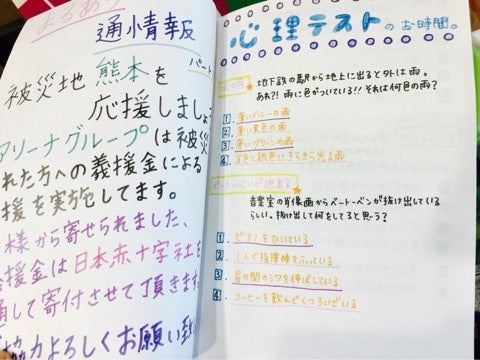 まるあり
通情報
パート
被災地 熊本を
応援しましょ
アリーナグループは被災
れた方への義援金による
援を実施してます。
様から寄せられました、
援金は日本赤十字社を
通して寄付させて頂きます
協力よろしくお願い致
心理テストのお時間。
地下鉄の駅から地上に出ると外は雨。
あれ?!雨に色がついている!!それは何色の雨?
1. 薄いブルーの雨
2. 薄い黄色の雨
3. 薄いグリーンの雨
4. 金色と銀色にきらきら光る雨
ベートーベンが
音楽室の肖像画からベートーベンが抜け出している
らしい。抜け出して何をしてると思う?
1. ピアノをひいている
2. 1人で指揮棒をふっている
3. 眉の間のシワを伸ばしている
4. コーヒーを飲んでくつろいでいる